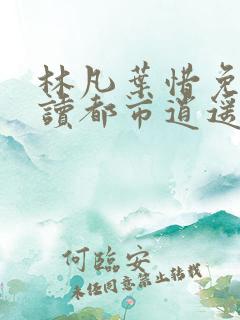 林凡葉惜免
讀都市逍遥
何臨安
未经同意禁止转载